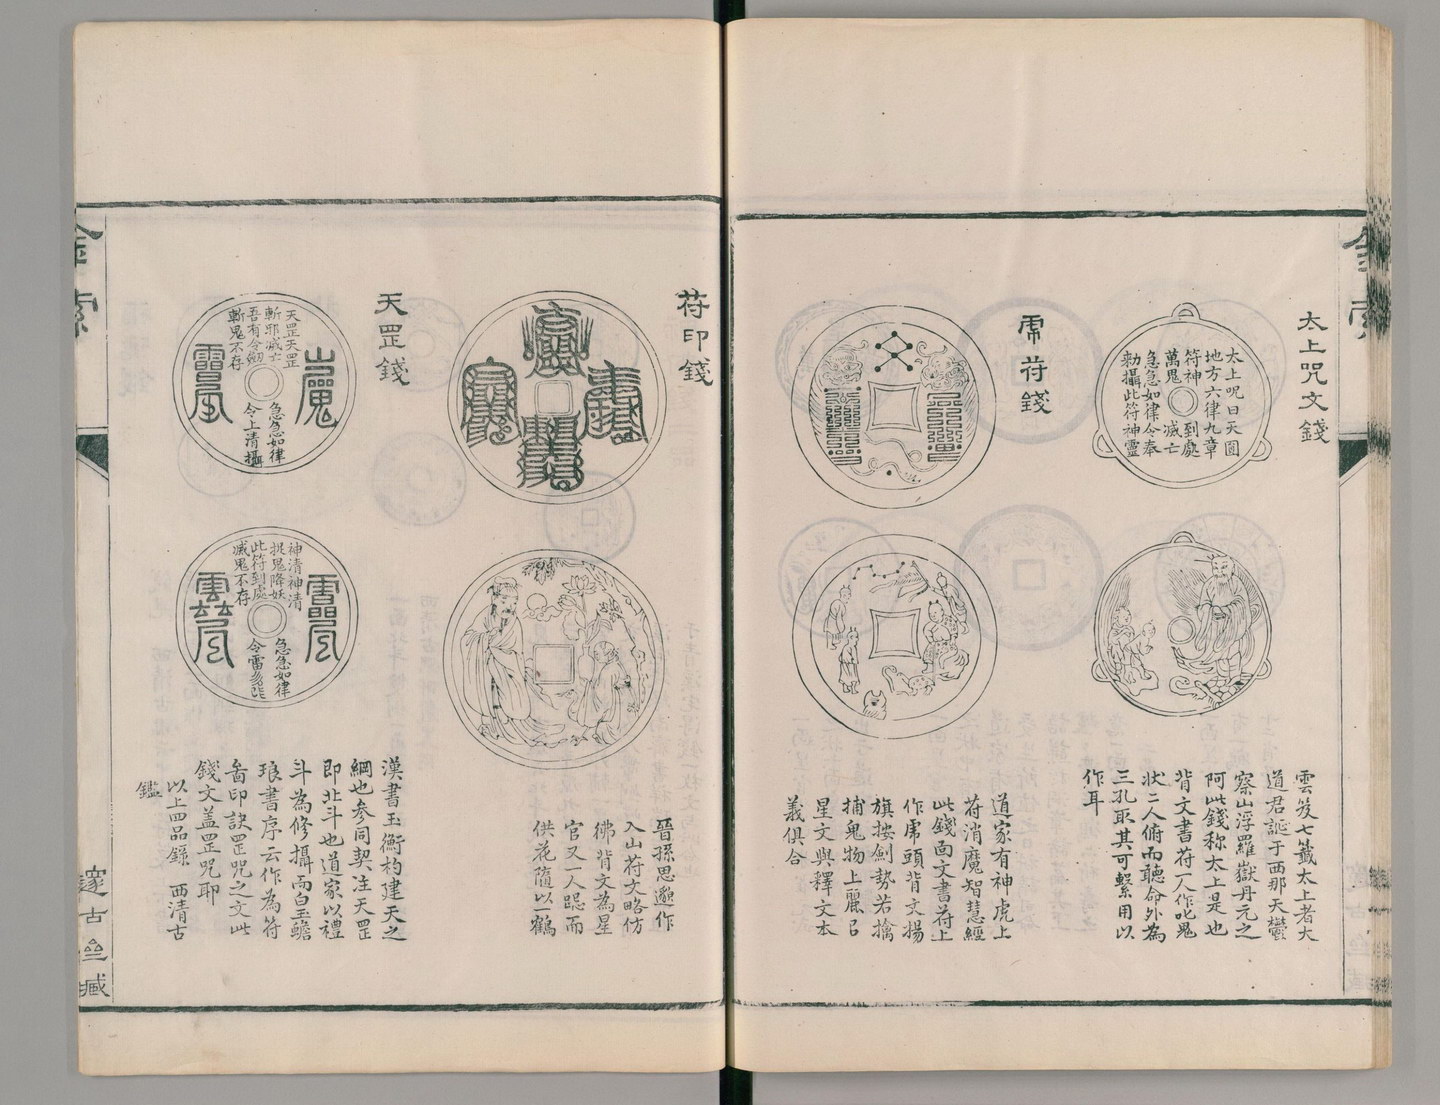 金索
太上咒文錢
太上呪曰天圓
地方六律九章
符神到處
萬鬼滅亡
急急如律令奉
勑攝此符神靈
雲笈七籤太上者大
道君誕于西那天鬱
察山浮羅嶽丹元之
阿此錢称太上是也
背文書符一人作叱鬼
狀二人俯而聽命外為
三孔取其可繫用以
作耳
虎符錢
道家有神虎上
符消魔智慧經
此錢面文書符上
作虎頭背文揚
旗按劍勢若擒
捕鬼物上麗
星文與釋文本
義俱合
符印錢
晉孫思邈作
入山符文略仿
彿背文為星
官又一人跽而
供花蔭以一鶴
天罡錢
天罡天罡
斬邪滅亡
吾有令
斬鬼不存
急急如律
令上清攝
神清神清
捉鬼降妖
此符到處
滅鬼不存
急急如律
令雷
漢書玉衡杓建天之
綱也参同契注天罡
即北斗也道家以禮
斗為修攝而白玉蟾
琅書序云作為符
畵印訣罡咒之文此
錢文盖罡咒耶
以上四品錄 西清古
鑑
金索
邃古㕡臧